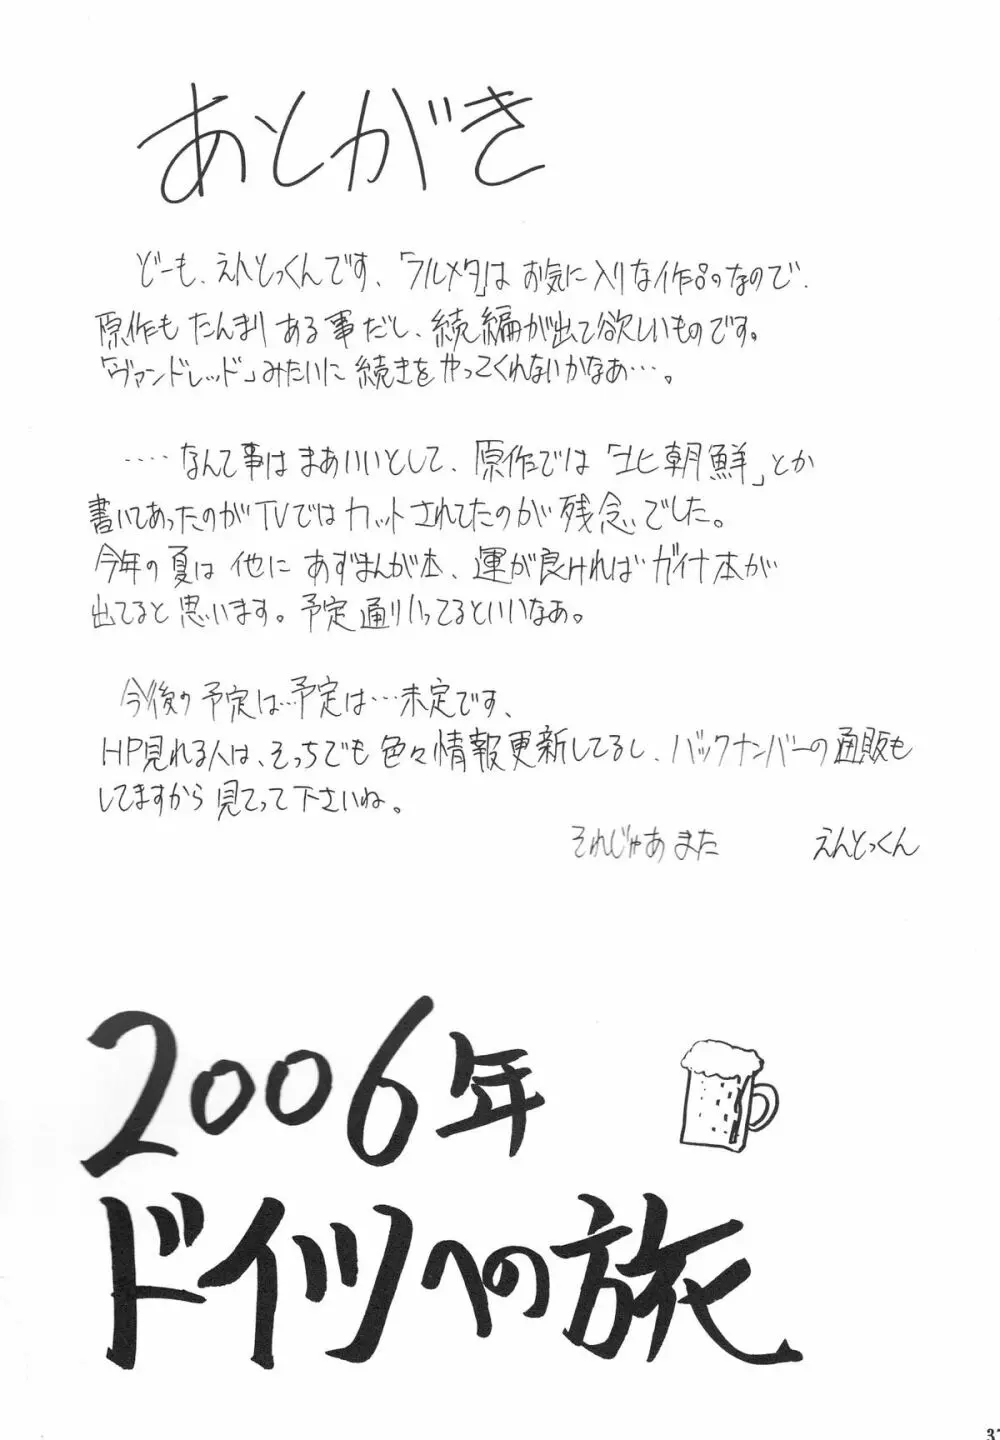 あとがき
どーも、えんとっくんです、「フルメタ」は お気に入りな作品のなので、
原作も たんまり ある事だし、続編が出て欲しいものです。
「ヴァンドレッド」みたいに 続きを やってくれないかなあ…。
‥‥なんて事は まあいいとして、原作では「北朝鮮」とか
書いてあったのが TVでは カットされてたのが 残念でした。
今年の 夏は 他に あずまんが本、運が良ければ ガイナ本が
出てると 思います。予定通りいってるといいなあ。
今後の 予定は…予定は…未定です、
HP見れる人は、そっちでも 色々情報更新してるし、バックナンバーの通販も
してますから 見てって 下さいね。
それじゃあ また えんとっくん
2006年
ドイツへの旅
37